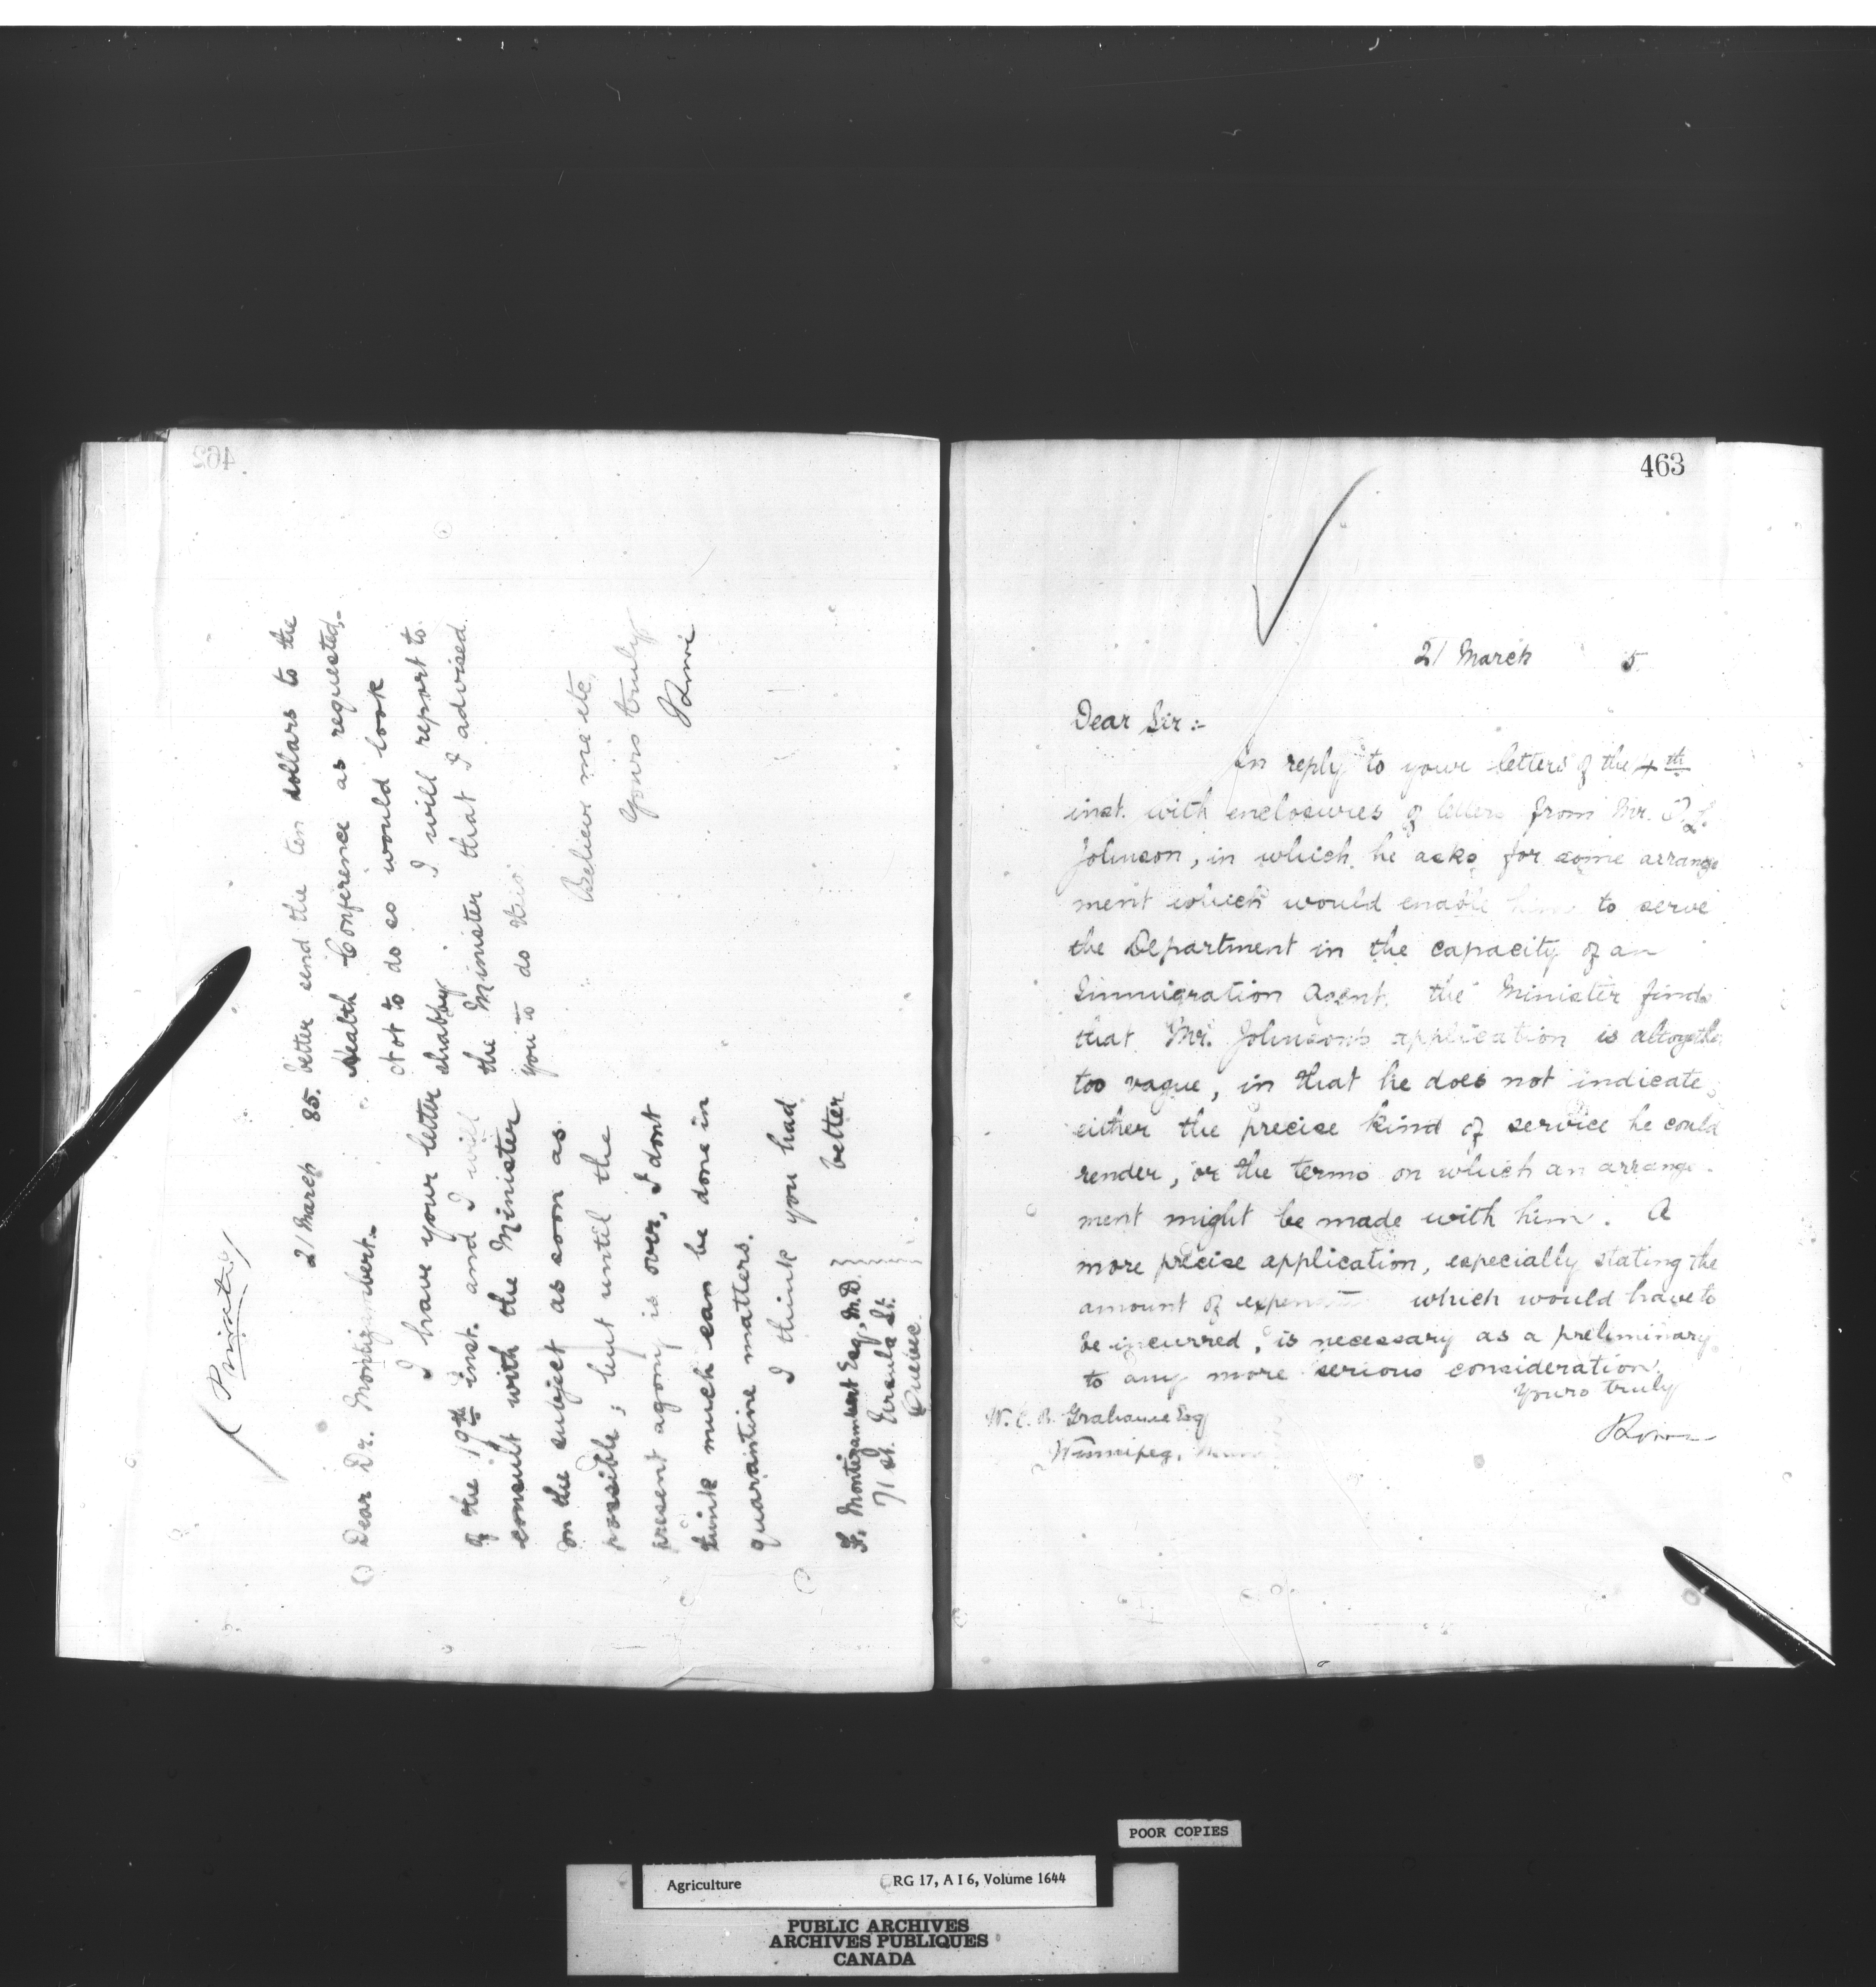 462
(Private)
21 March 85.
Dear Dr. Montizambert.-
I have your letter
of the 19th inst. and I will
consult with the Minister
on the subject as soon as
possible; but until the
present agony is over, I dont
think much can be done in
quarantine matters.
I think you had
better
F. Montizambert Esq, M.D.
71 St. Ursula St.
Quebec.
better send the ten dollars to the
Health Conference as requested,-
Not to do so would look
shabby. I will report to
the Minister that I advised
you to do this.
Believe me etc,
Yours truly
463
21 March 5.
Dear Sir:-
In reply to your letters of the
th
inst. with enclosures of letters from Mr.
Johnson, in which he asks for some arrange
ment which would enable him to serve
the Department in the capacity of an
Immigration Agent, the Minister finds
that Mr. Johnson's application is altogether
too vague, in that he does not indicate
either the precise kind of service he could
render, or the terms on which an arrange-
ment might be made with him. A
more precise application, especially stating the
amount of which would have to
be incurred, is necessary as a preliminary
to any more serious consideration.
Yours truly
W. C. B. Grahame Esq
Winnipeg,
POOR COPIES
Agriculture RG 17, A I 6, Volume 1644
PUBLIC ARCHIVES
ARCHIVES PUBLIQUES
CANADA